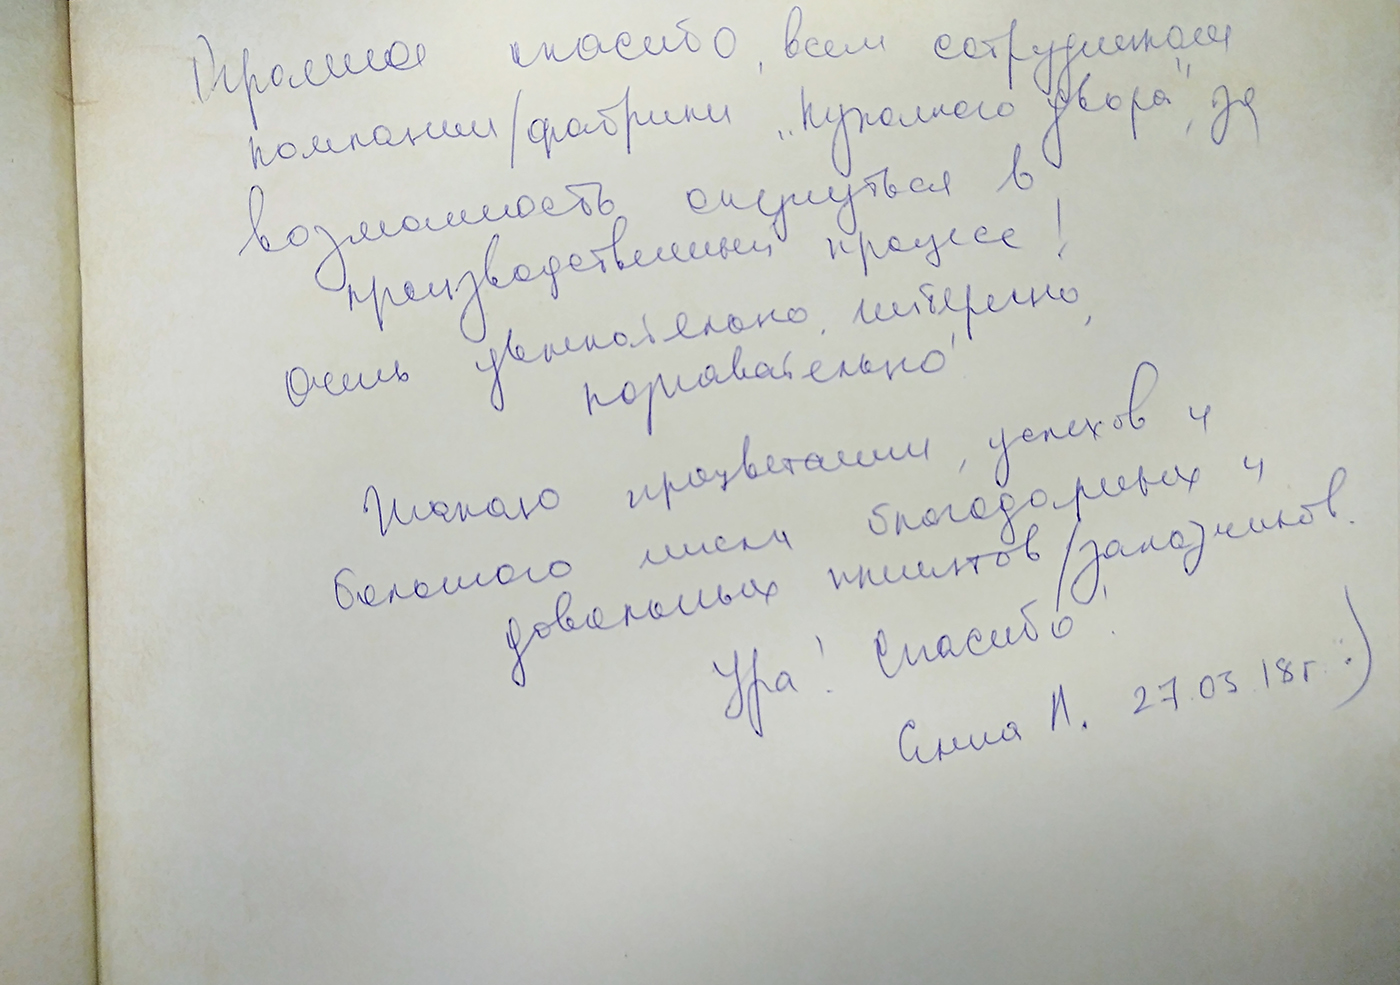 Огромное спасибо, всем сотрудникам
компании/фабрики "Кухонного двора", за
возможность окунуться в
производственный процесс!
Очень увлекательно, интересно,
познавательно!
Желаю процветания, успехов и
большого числа благодарных и
довольных клиентов/заказчиков.
Ура! Спасибо!
27.03.18г. :)